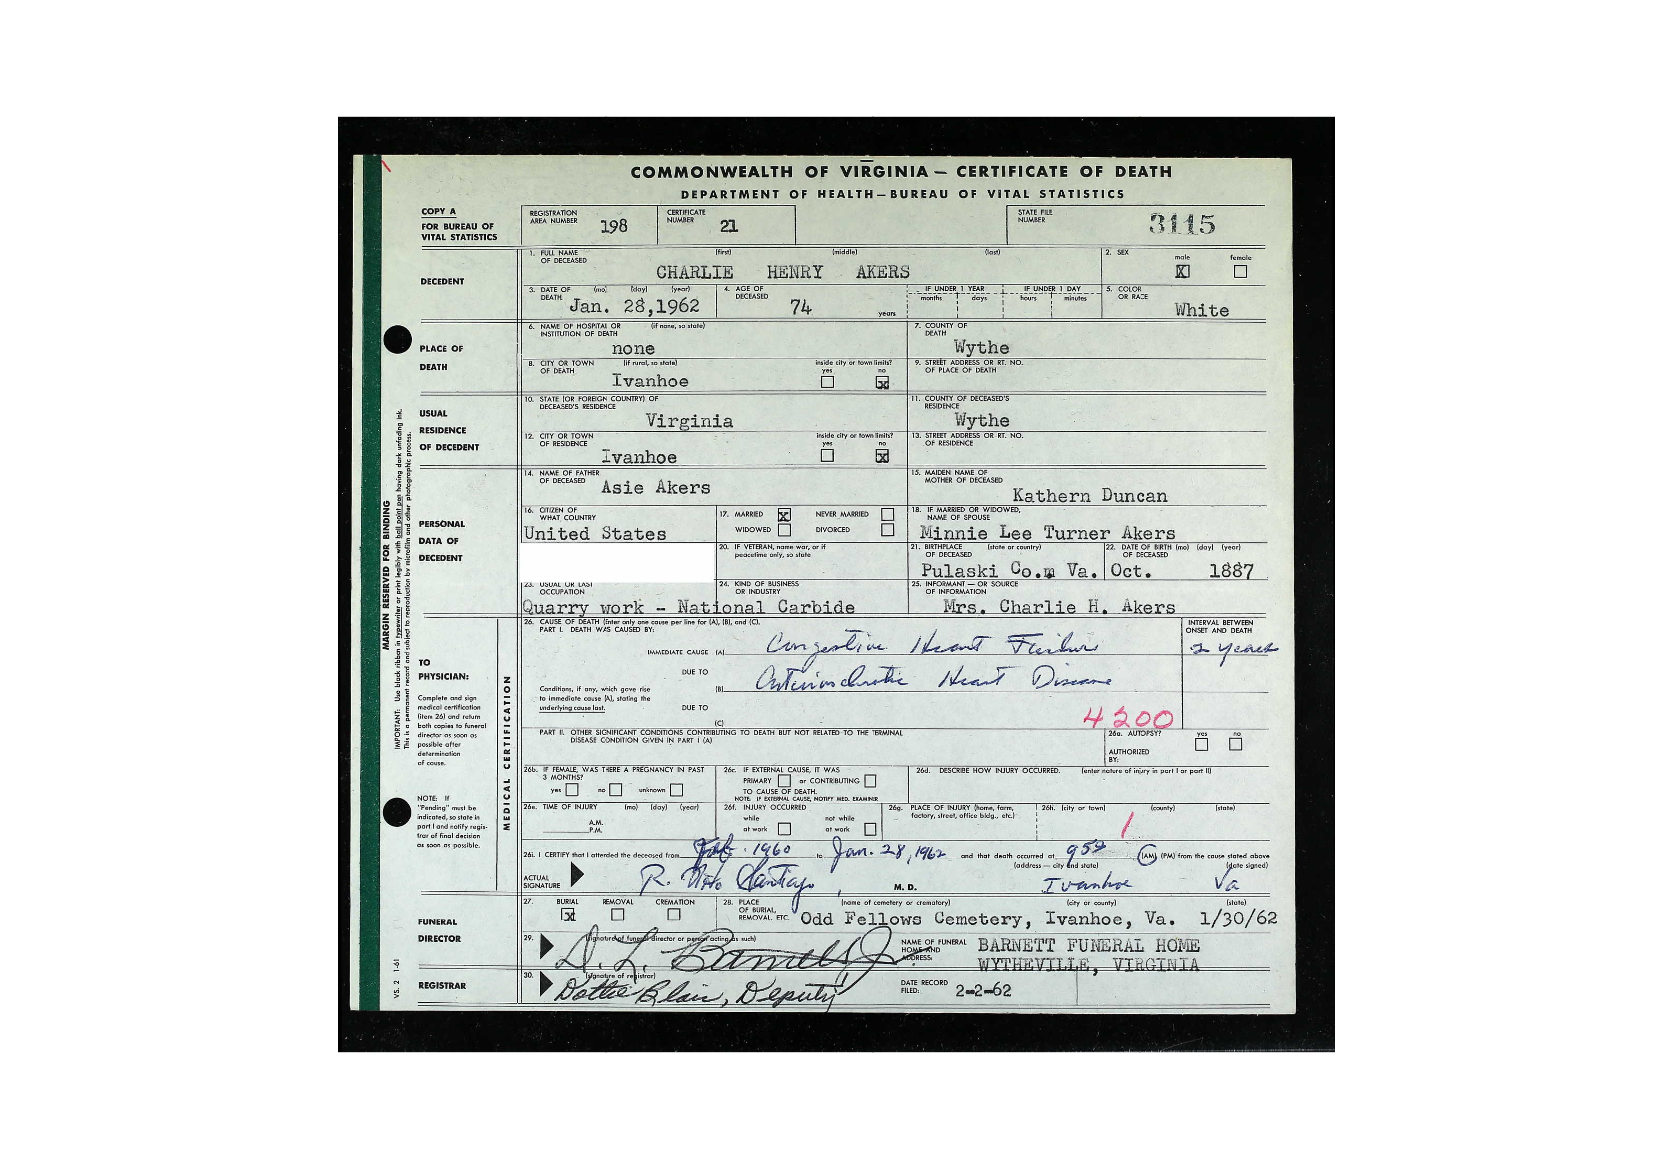 COMMONWEALTH OF VIRGINIA — CERTIFICATE OF DEATH
DEPARTMENT OF HEALTH—BUREAU OF VITAL STATISTICS
COPY A
FOR BUREAU OF
VITAL STATISTICS
REGISTRATION AREA NUMBER 198
CERTIFICATE NUMBER 21
STATE FILE NUMBER 3115
DECEDENT
1. FULL NAME OF DECEASED (first) (middle) (last)
CHARLIE HENRY AKERS
2. SEX male X female
3. DATE OF DEATH (mo) (day) (year) Jan. 28,1962
4. AGE OF DECEASED 74 years
IF UNDER 1 YEAR months days
IF UNDER 1 DAY hours minutes
5. COLOR OR RACE White
PLACE OF DEATH
6. NAME OF HOSPITAL OR INSTITUTION OF DEATH (if none, so state) none
7. COUNTY OF DEATH Wythe
8. CITY OR TOWN OF DEATH (if rural, so state) Ivanhoe
inside city or town limits? yes no X
9. STREET ADDRESS OR RT. NO. OF PLACE OF DEATH
USUAL RESIDENCE OF DECEDENT
10. STATE (OR FOREIGN COUNTRY) OF DECEASED'S RESIDENCE Virginia
11. COUNTY OF DECEASED'S RESIDENCE Wythe
12. CITY OR TOWN OF RESIDENCE Ivanhoe
inside city or town limits? yes no X
13. STREET ADDRESS OR RT. NO. OF RESIDENCE
PERSONAL DATA OF DECEDENT
14. NAME OF FATHER OF DECEASED Asie Akers
15. MAIDEN NAME OF MOTHER OF DECEASED Kathern Duncan
16. CITIZEN OF WHAT COUNTRY United States
17. MARRIED X NEVER MARRIED
WIDOWED DIVORCED
18. IF MARRIED OR WIDOWED, NAME OF SPOUSE Minnie Lee Turner Akers
20. IF VETERAN, name war, or if peacetime only, so state
21. BIRTHPLACE (state or country) OF DECEASED Pulaski Co.m Va.
22. DATE OF BIRTH (mo) (day) (year) OF DECEASED Oct. 1887
23. USUAL OR LAST OCCUPATION
24. KIND OF BUSINESS OR INDUSTRY
Quarry work - National Carbide
25. INFORMANT — OR SOURCE OF INFORMATION Mrs. Charlie H. Akers
MARGIN RESERVED FOR BINDING
IMPORTANT: Use black ribbon in typewriter or print legibly with ball point pen having dark unfading ink.
This is a permanent record and subject to reproduction by microfilm and other photographic process.
VS. 2 1-61
TO PHYSICIAN:
Complete and sign
medical certification
(item 26) and return
both copies to funeral
director as soon as
possible after
determination
of cause.
NOTE: If
"Pending" must be
indicated, so state in
part I and notify regis-
trar of final decision
as soon as possible.
MEDICAL CERTIFICATION
26. CAUSE OF DEATH (Enter only one cause per line for (A), (B), and (C).
PART I. DEATH WAS CAUSED BY:
INTERVAL BETWEEN ONSET AND DEATH
IMMEDIATE CAUSE (A) Congestive Heart Failure 2 years
DUE TO
(B) Arteriosclerotic Heart Disease
Conditions, if any, which gave rise
to immediate cause (A), stating the
underlying cause last.
DUE TO
(C)
4200
PART II. OTHER SIGNIFICANT CONDITIONS CONTRIBUTING TO DEATH BUT NOT RELATED TO THE TERMINAL
DISEASE CONDITION GIVEN IN PART I (A)
26a. AUTOPSY? yes no
AUTHORIZED BY:
26b. IF FEMALE, WAS THERE A PREGNANCY IN PAST 3 MONTHS?
yes no unknown
26c. IF EXTERNAL CAUSE, IT WAS
PRIMARY or CONTRIBUTING
TO CAUSE OF DEATH.
NOTE: IF EXTERNAL CAUSE, NOTIFY MED. EXAMINER
26d. DESCRIBE HOW INJURY OCCURRED. (enter nature of injury in part I or part II)
26e. TIME OF INJURY (mo) (day) (year)
A.M.
P.M.
26f. INJURY OCCURRED
while at work not while at work
26g. PLACE OF INJURY (home, farm, factory, street, office bldg., etc.)
26h. (city or town) (county) (state)
26i. I CERTIFY that I attended the deceased from Feb. 1960 to Jan. 28, 1962 and that death occurred at 9 (AM) (PM) from the cause stated above
(address — city and state) (date signed)
ACTUAL SIGNATURE R. Santiago, M. D. Ivanhoe Va
FUNERAL DIRECTOR
27. BURIAL X REMOVAL CREMATION
28. PLACE OF BURIAL, REMOVAL, ETC. (name of cemetery or crematory) (city or county) (state)
Odd Fellows Cemetery, Ivanhoe, Va. 1/30/62
29. (signature of funeral director or person acting as such)
D. L. Barnett Jr.
NAME OF FUNERAL HOME AND ADDRESS: BARNETT FUNERAL HOME
WYTHEVILLE, VIRGINIA
REGISTRAR
30. (signature of registrar)
Dottie Blair, Deputy
DATE RECORD FILED: 2-2-62